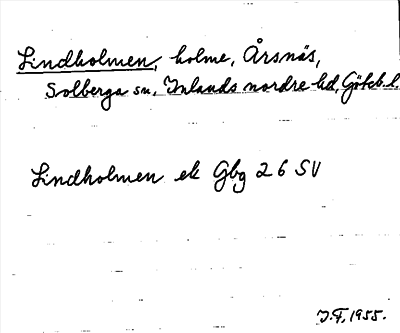 Lindholmen, holme, Årsnäs,
Solberga sn, Inlands nordre hd, Göteb. l.
Lindholmen ek Gbg 26 SV
J.F. 1955.